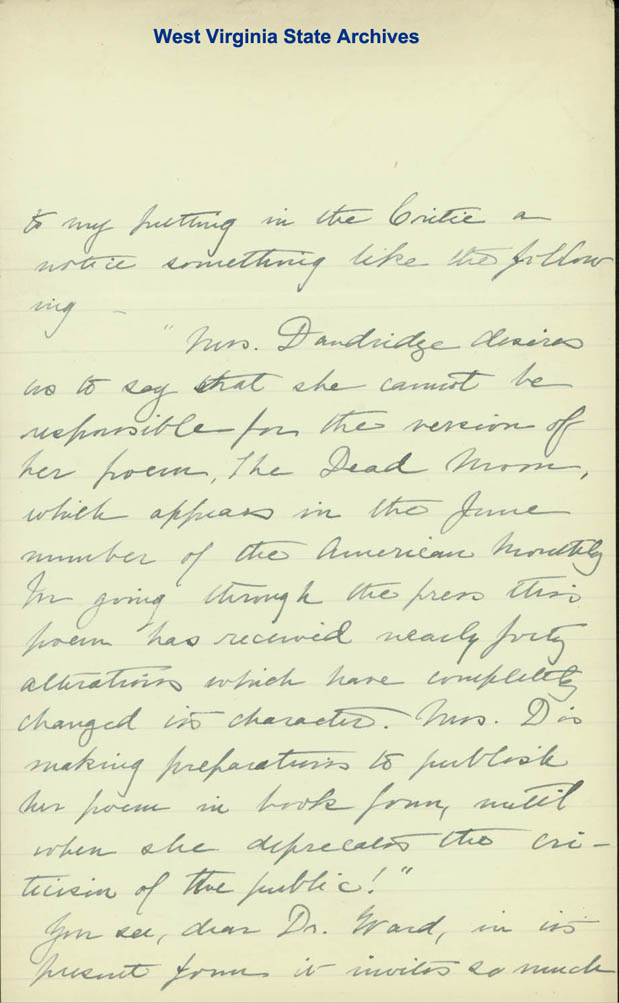 West Virginia State Archives
to my putting in the Critic a
notice something like the follow
ing –
"Mrs. Dandridge desires
us to say that she cannot be
responsible for the version of
her poem, The Dead Moon,
which appears in the June
number of the American Monthly
In going through the press this
poem has received nearly forty
alterations which have completely
changed its character. Mrs. D is
making preparations to publish
her poem in book form, until
when she deprecates the cri–
ticism of the public!"
You see, dear Dr. Ward, in its
present form it invites so much